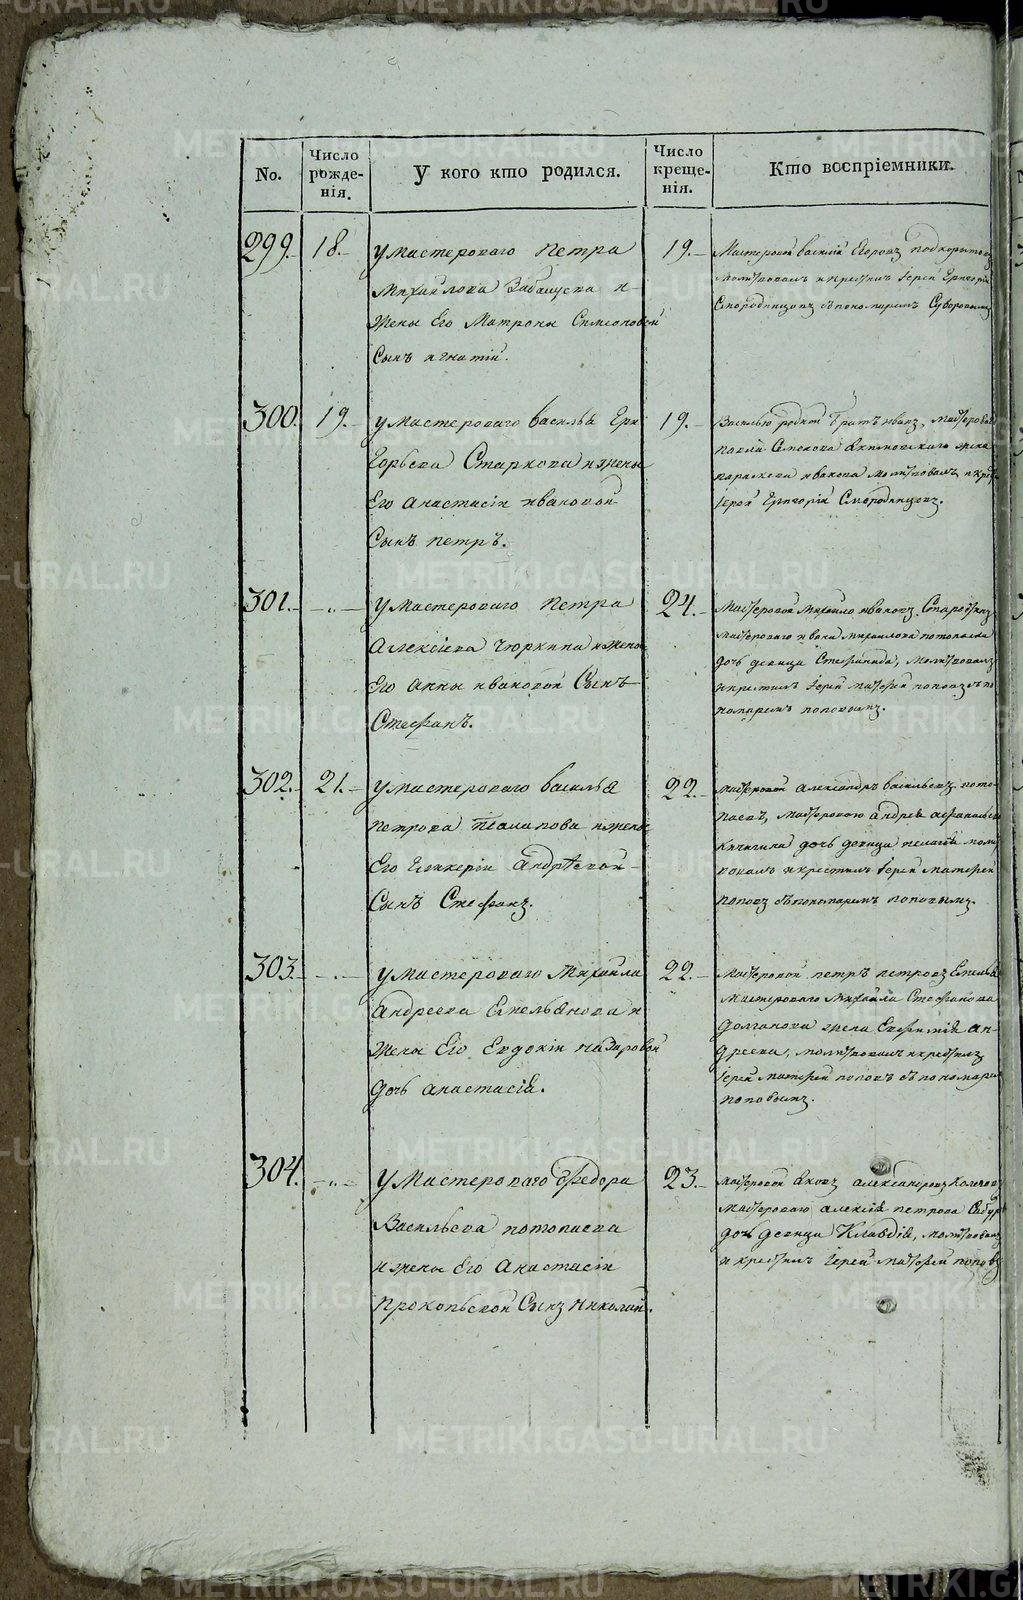 No.
Число рожде- нія.
У кого кто родился.
Число креще- нія.
Кто воспріемники.
299. 18.
у мастероваго Петра
Михайлова и
жены Его Матроны Симеоновой
Сынъ игнатій.
19.
Мастеровой василій Егоровъ
молитвовалъ и крестилъ Іерей Григорій
Смородинцовъ съ пономаремъ Суворовымъ
300. 19.
у мастероваго василья Гри
горьева Старкова и жены
Его анастасіи ивановой
Сынъ петръ.
19.
братъ иванъ, мастероваго
павла Семенова жена
параскева иванова молитвовалъ и крес
Іерей Григорій Смородинцовъ.
301.
у мастероваго Петра
Алексіева Чюркина и жены
Его Анны ивановой Сынъ
Стефанъ.
24.
Мастеровой Михайло ивановъ
мастероваго ивана михайлова потопаева
дочь девица Стефанида, молитвовалъ
и крестилъ Іерей матфей поповъ съ по
номаремъ поповымъ.
302. 21.
у мастероваго василья
петрова и жены
Его Гликеріи андрѣевой
Сынъ Стефанъ.
22.
мастеровой александръ васильевъ пото
паевъ, мастероваго андрея афанасьева
кичигина дочь девица пелагея молит
вовалъ и крестилъ Іерей матфей
поповъ съ пономаремъ поповымъ.
303.
у мастероваго Михайла
андреева Емельянова и
жены Его Евдокіи назаровой
дочь анастасія.
22.
мастеровой петръ петровъ
мастероваго михайла Стефанова
долганова жена Евфимія ан-
дреева, молитвовалъ и крестилъ
Іерей матфей поповъ съ пономарем
поповымъ.
304.
у мастероваго Федора
Васильева потопаева
и жены Его Анастасіи
прокопьевой Сынъ николай.
23.
мастеровой александровъ
мастероваго алексія петрова
дочь девица Клавдія, молитвовалъ
и крестилъ Іерей матфей поповъ
METRIKI.GASO-URAL.RU